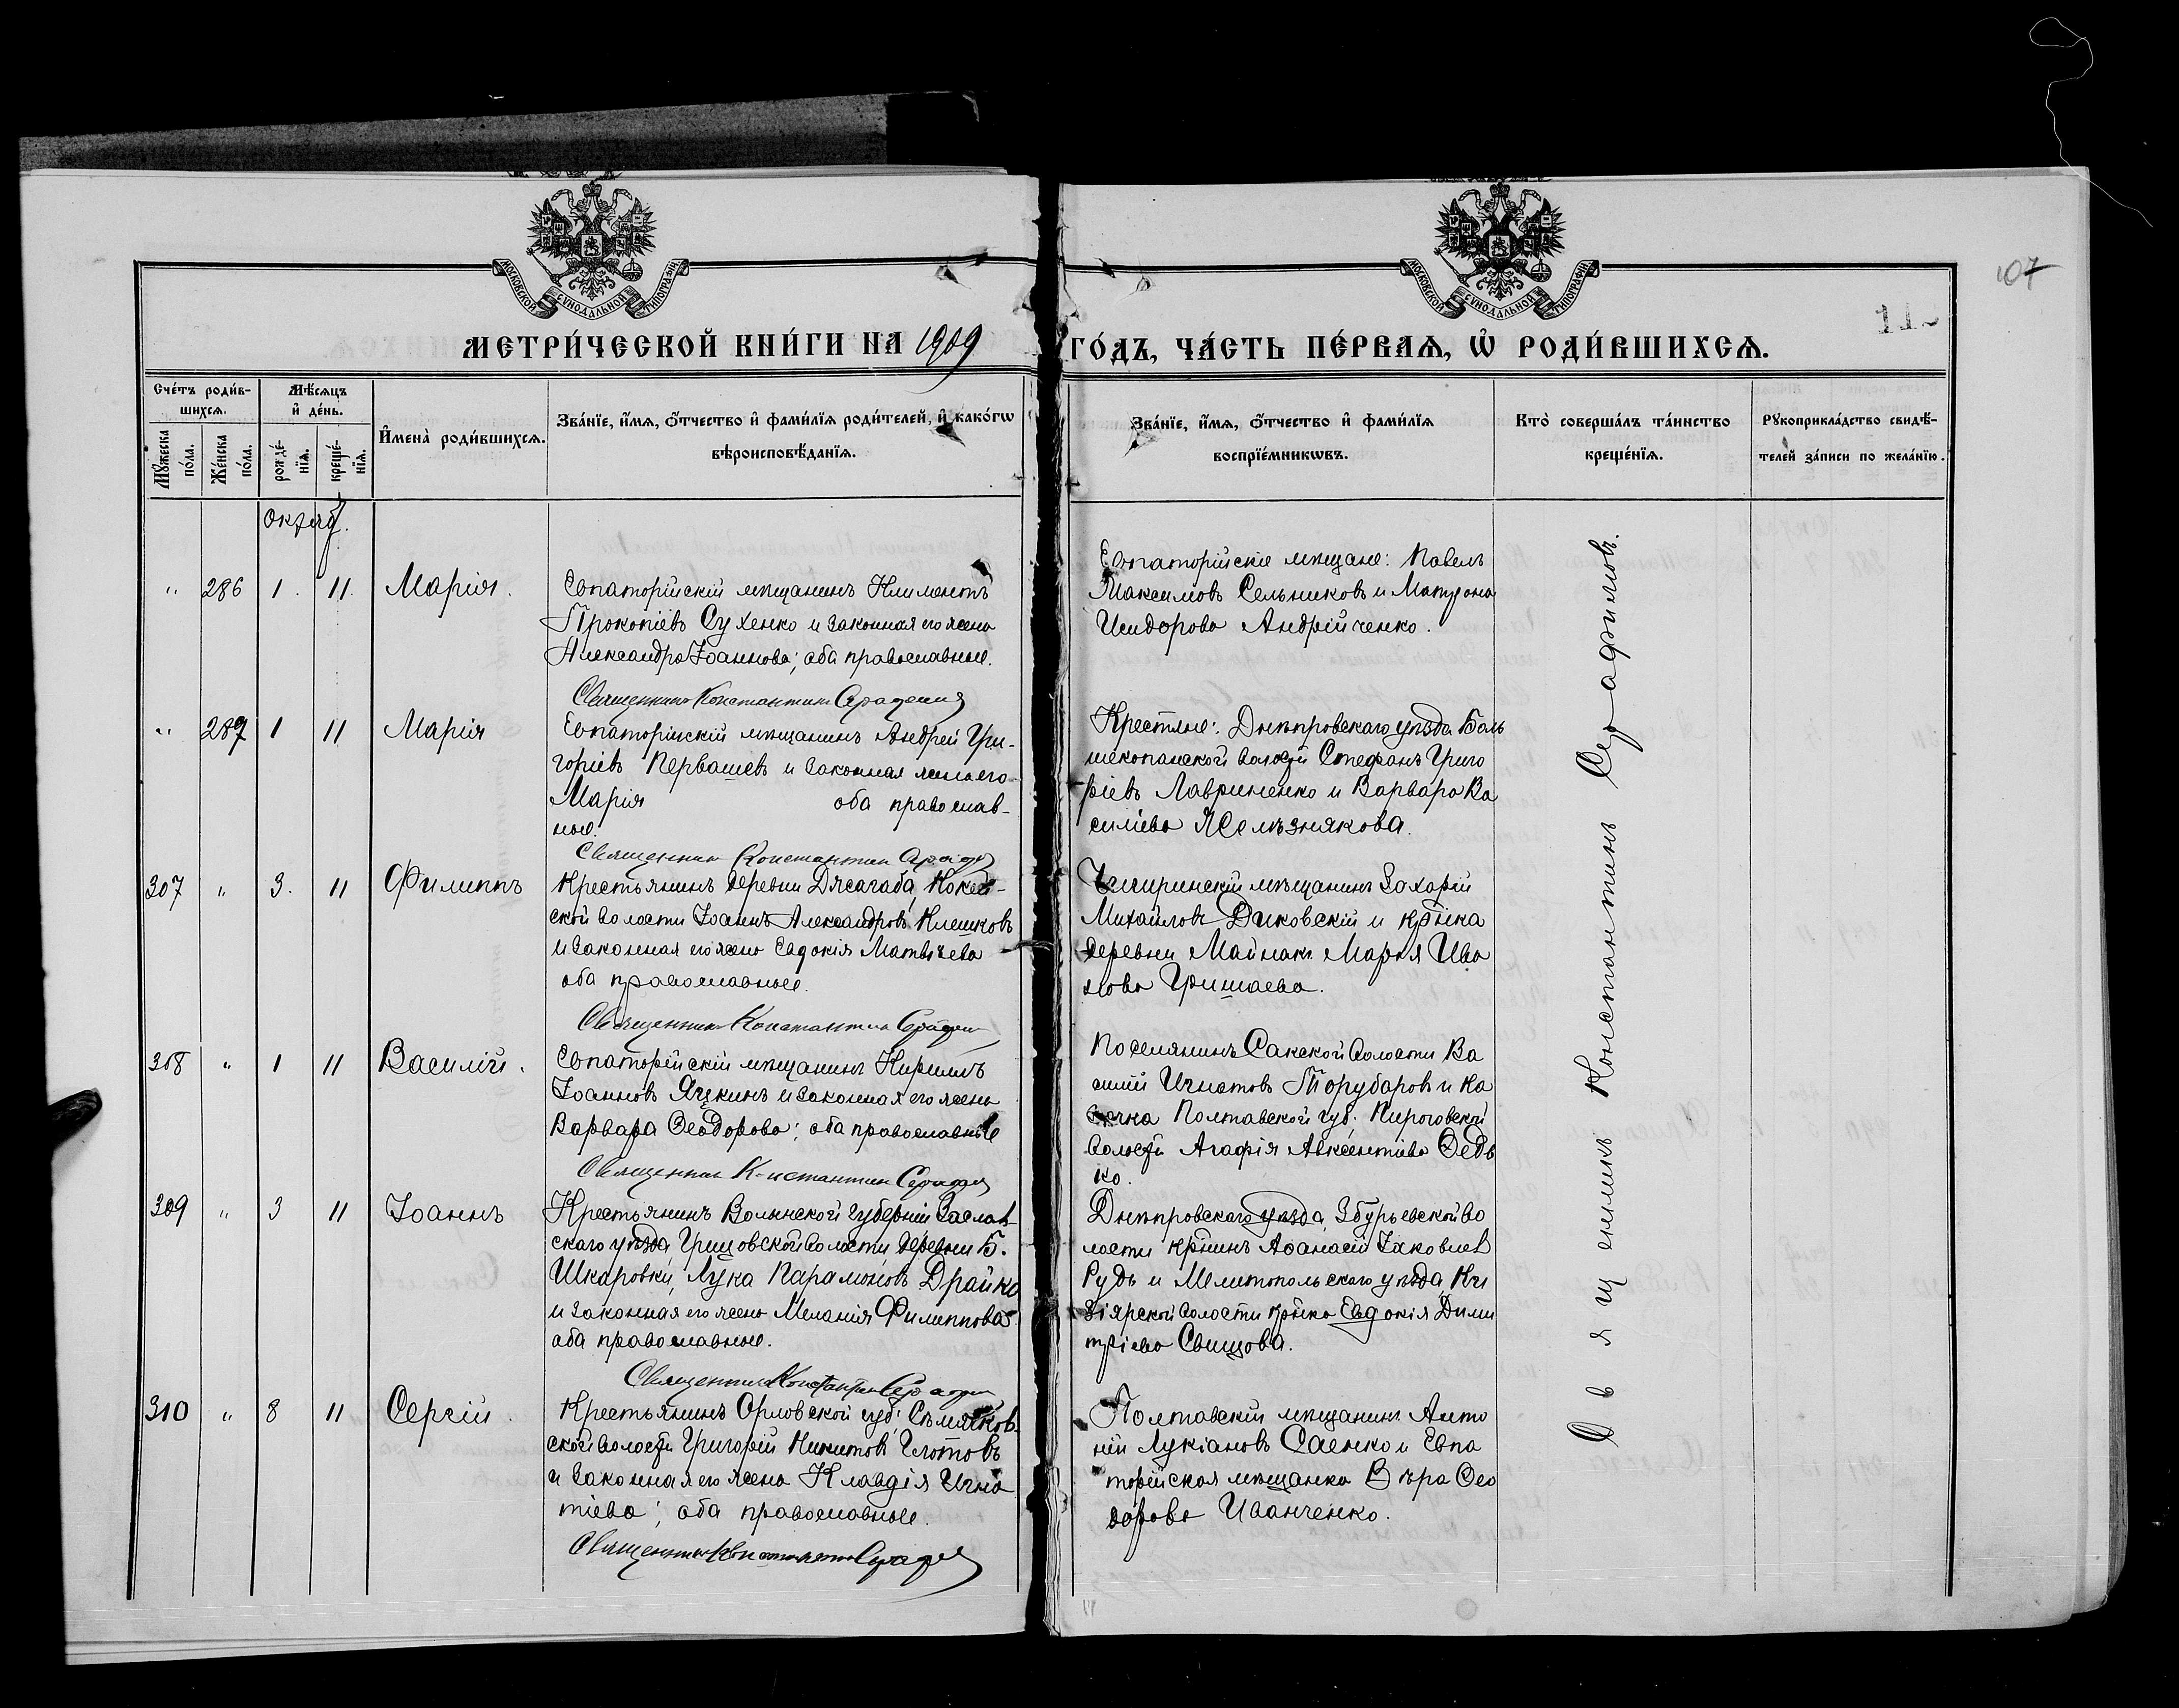 МОСКОВСКОЙ СУНОДАЛЬНОЙ ТИПОГРАФІИ
МОСКОВСКОЙ СУНОДАЛЬНОЙ ТИПОГРАФІИ
107
МЕТРИ́ЧЕСКОЙ КНИ́ГИ НА 1909 ГО́ДЪ, ЧА́СТЬ ПЕ́РВАѦ, Ѡ҆ РОДИ́ВШИХСѦ.
Сче́тъ роди́в-
шихсѧ.
Мꙋ́жеска
по́ла.
Же́нска
по́ла.
Мѣ́сѧцъ
и҆ де́нь.
рожде́-
нїѧ.
креще́-
нїѧ.
И҆мена̀ роди́вшихсѧ.
Зва́нїе, и҆́мѧ, ѻ҆́тчество и҆ фами́лїѧ роди́телей, и҆ како́гѡ
вѣроисповѣ́данїѧ.
Зва́нїе, и҆́мѧ, ѻ҆́тчество и҆ фами́лїѧ
воспрїе́мникѡвъ.
Кто̀ соверша́лъ та́инство
креще́нїѧ.
Рꙋкоприкла́дство свидѣ́-
телей за́писи по жела́нїю.
Октяб.
" 286 1. 11. Марія.
Евпаторійскій мѣщанинъ Климентъ
Прокопіевъ Сухенко и законная его жена
Александра Іоаннова; оба православные.
Священникъ Константинъ
Евпаторійскіе мѣщане: Павелъ
Максимовъ Сельниковъ и Матрона
Исидорова Андрійченко.
" 287 1 11 Марія
Евпаторійскій мѣщанинъ Андрей Гри-
горіевъ Первашевъ и законная жена его
Марія оба православ-
ные.
Священникъ Константинъ
Крестьяне: Днѣпровскаго уѣзда Боль
шекопанской волости Стефанъ Григо
ріевъ Лавриненко и Варвара Ва
силіева Желѣзнякова.
307 " 3. 11 Филиппъ
Крестьянинъ деревни Джагаба,
ской волости Іоаннъ Александровъ Клешковъ
и законная его жена Евдокія Матвѣева
оба православные.
Священникъ Константинъ
мѣщанинъ Захарій
Михайловъ Диковскій и кр-нка
деревни Майнакъ Марія Ива
нова Гришаева.
308 " 1 11 Василій.
Евпаторійскій мѣщанинъ Кириллъ
Іоанновъ Яцкинъ и законная его жена
Варвара Ѳеодорова; оба православные
Священникъ Константинъ
Поселянинъ Сакской волости Ва
силій Игнатовъ Торубаровъ и Ка
зачка Полтавской губ. Пироговской
волости Агафія Авксентіева Ѳедь
ко.
309 " 3 11 Іоаннъ
Крестьянинъ Волынской губерніи Заслав-
скаго уѣзда Грицовской волости деревни Б.
Шкаровки, Лука Парамоновъ Драйко
и законная его жена Меланія Филиппова
оба православные.
Священникъ Константинъ
Днѣпровскаго уѣзда, Збурьевской во
лости кр-нинъ Аѳанасій Іаковлев
Рудь и Мелитопольскаго уѣзда, Ки
зіярской волости кр-нка Евдокія Дими
тріева Свищова.
310 " 8 11 Сергій.
Крестьянинъ Орловской губ.
ской волости Григорій Никитовъ Глотовъ
и законная его жена Клавдія Игна
тіева; оба православные.
Священникъ Константинъ
Полтавскій мѣщанинъ Анто
ній Лукіановъ Саенко и Евпа
торійская мѣщанка Вѣра Ѳео
дорова Иванченко.
Священникъ Константинъ Серафимовъ.